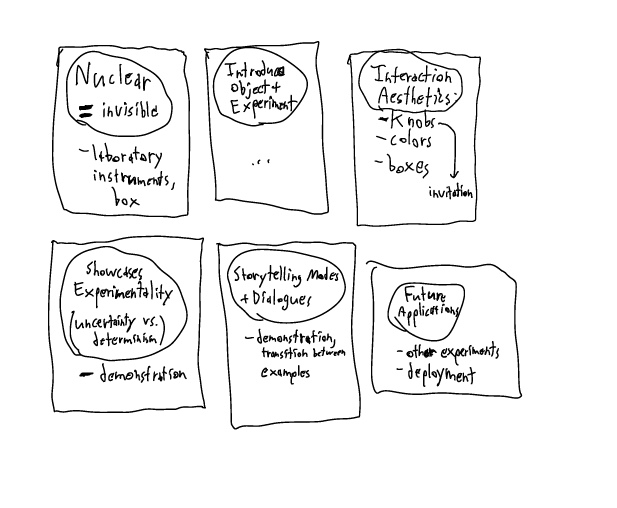 Nuclear
= invisible
- laboratory
instruments,
box
Introduce
Object +
Experiment
...
Interaction
Aesthetics
- Knobs
- colors
- boxes
invitation
Showcases
Experimentality
(uncertainty vs.
determinism)
- demonstration
Storytelling Modes
+ Dialogues
- demonstration,
transition between
examples
Future
Applications
- other experiments
- deployment